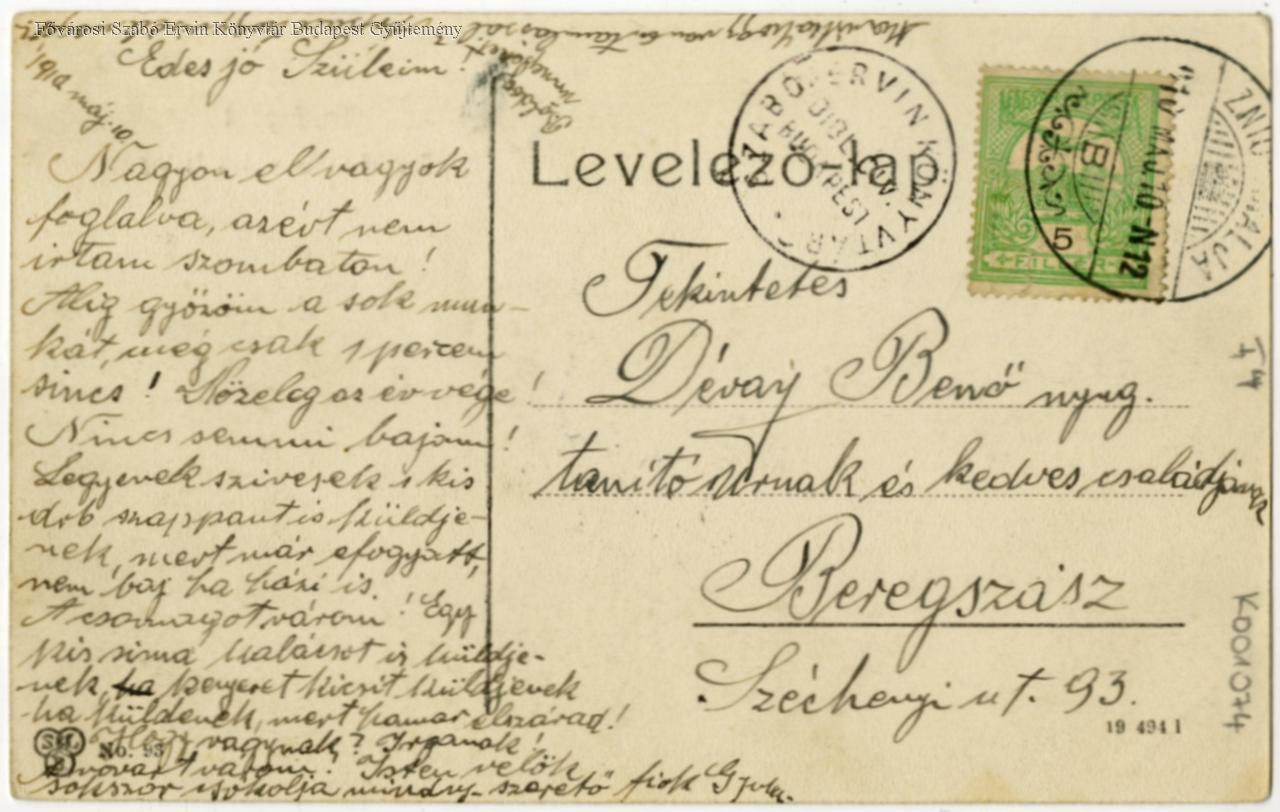 Fővárosi Szabó Ervin Könyvtár Budapest Gyűjtemény
Edes jó Szüleim!
1910 máj. 10.
Nagyon el vagyok
foglalva, azért nem
irtam szombaton!
Alig győzöm a sok mun-
kát, még csak 1 percem
sincs! Közeleg az év vége!
Nincs semmi bajom!
Legyenek szivesek 1 kis
drb szappant is küldje-
nek, mert már efogyatt,
nem baj ha házi is.
A csomagot várom! Egy
kis sima kalácsot is küldje-
nek, ha kenyeret kicsit küldjenek
ha küldenek, mert hamar elszárad!
Hogy vagynak? Irjanak!
várom! Isten velök
sokszor csokolja mindny. szerető fiok Gyula.
Levelező lap
SZABÓ ERVIN KÖNYVTÁR
BUDAPEST
4 FILLÉR
ZNIÓ VÁRALJA
910 MÁJ. 10-N12
B
5
Tekintetes
Dévay Benő nyug.
tanító Úrnak és kedves családjának
Beregszász
Széchenyi ut. 93.
19 494 1
K0010074
No. 93